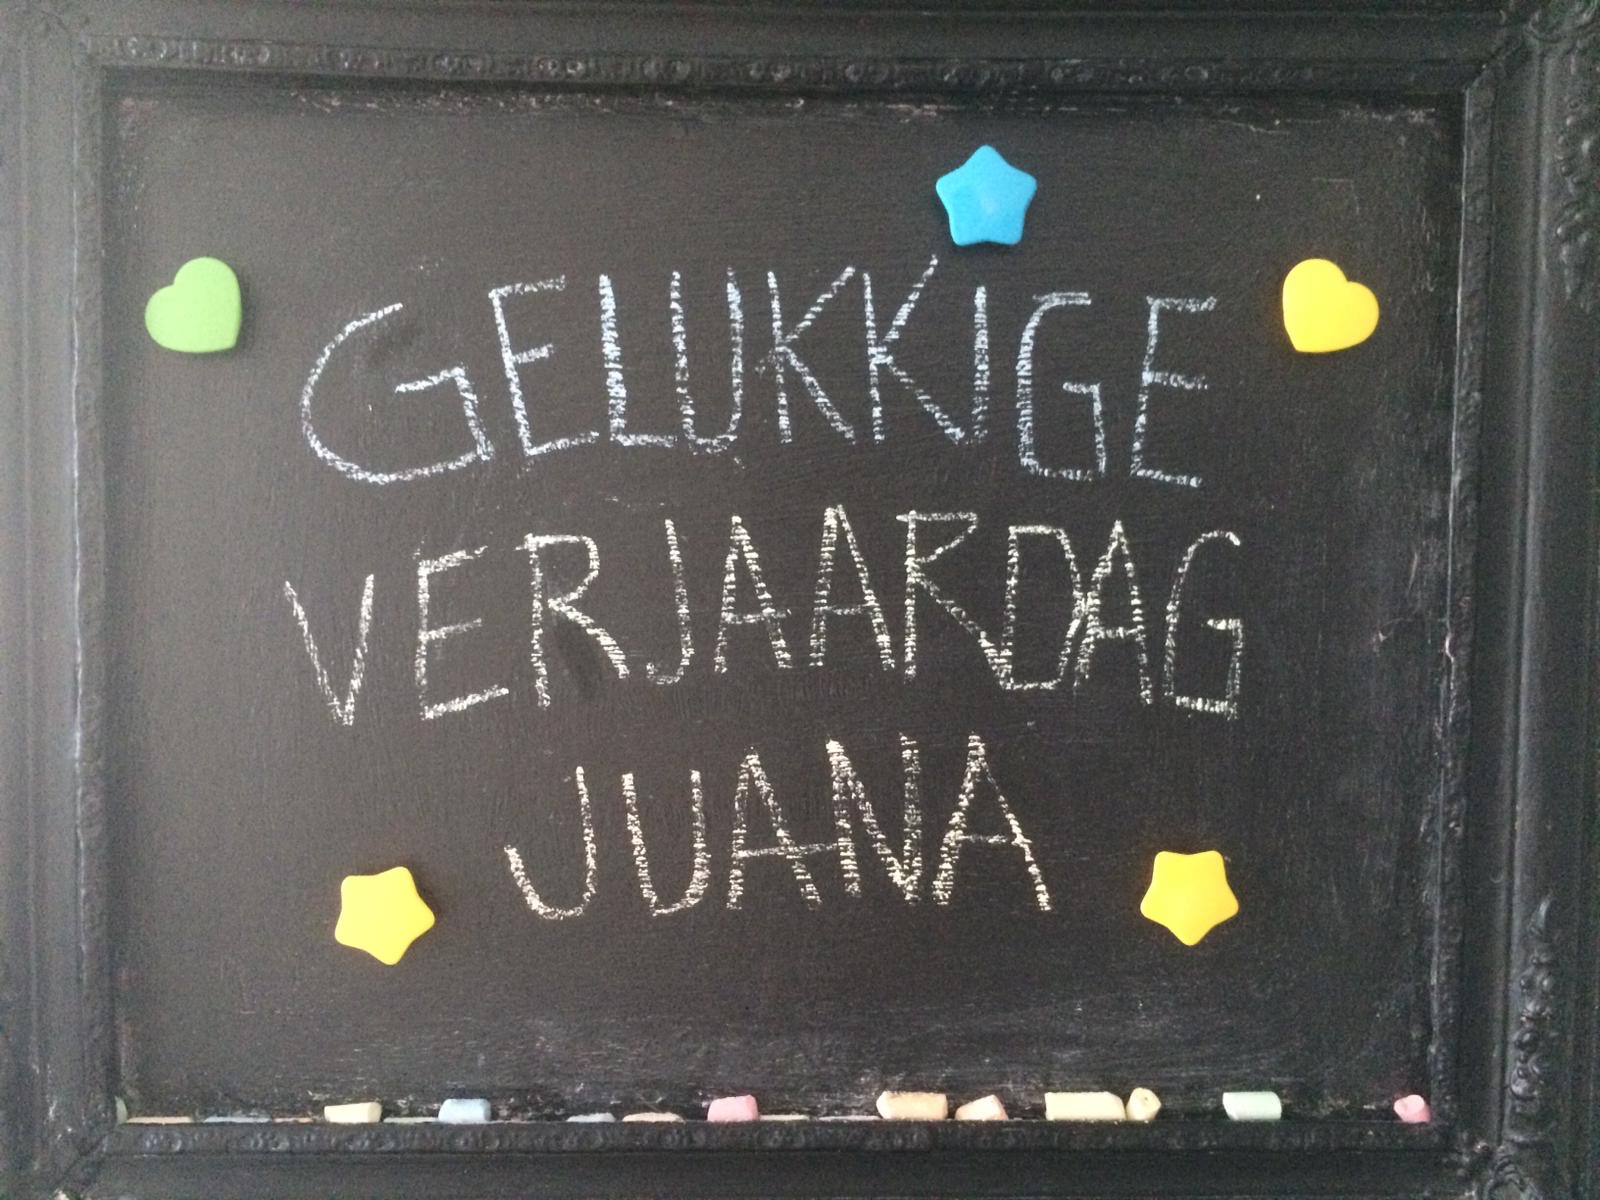 GELUKKIGE
VERJAARDAG
JUANA